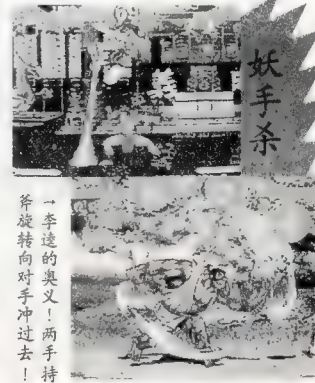 妖手杀
→李逵的奥义！两手持
斧旋转向对手冲过去！